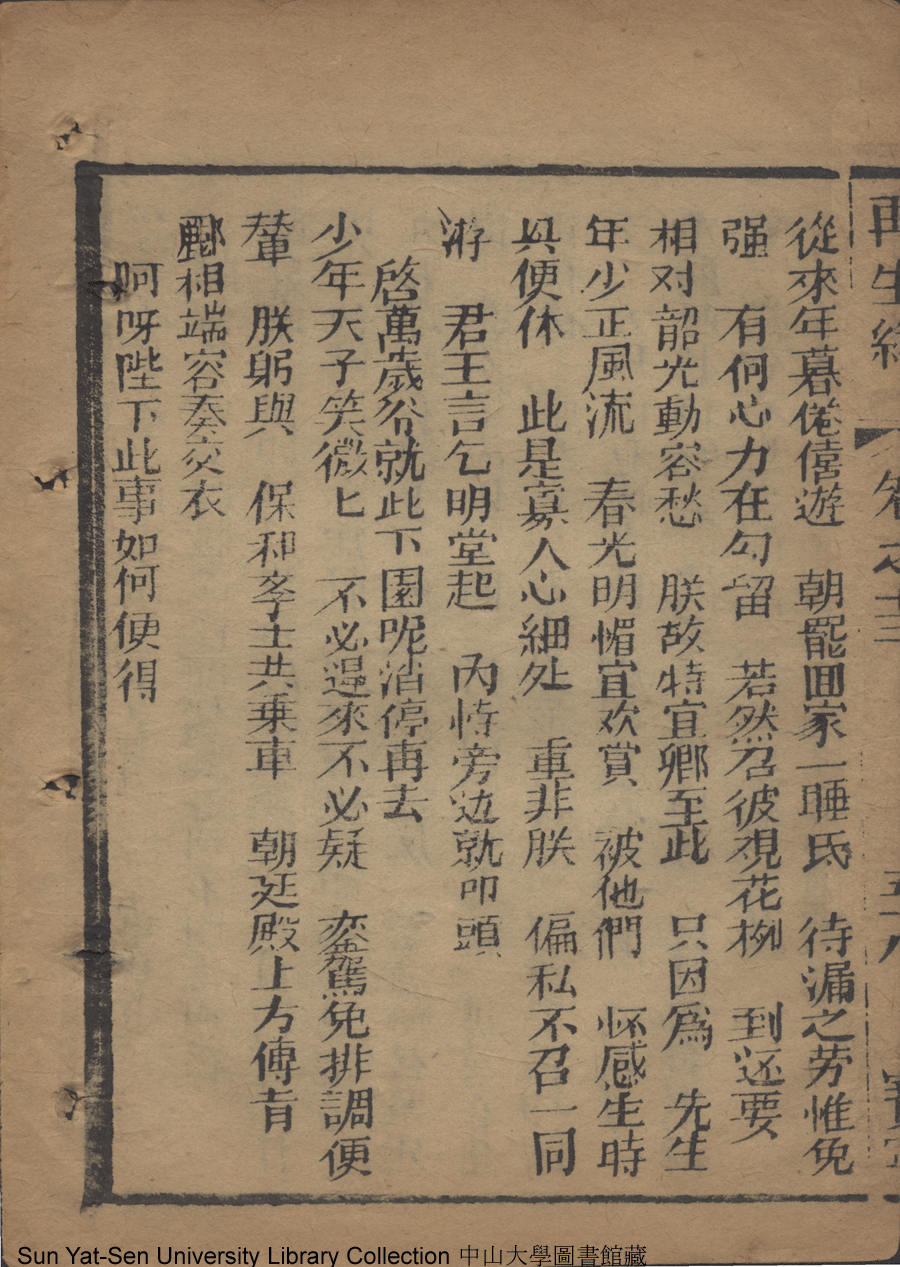 再生緣 卷之十三 五十八
從來年暮倦僖遊 朝罷囬家一睡氏 待漏之劳惟免
强 有何心力在勾留 若然召彼視花栁 到还要
相对韶光動容愁 朕故特宜鄉至此 只因爲 先生
年少正風流 春光明媚宜欢賞 被他們 怀感生時
具便休 此是寡人心細处 重非朕 偏私不召一同
游 君王言乞明堂起 内恃旁边就叩頭
啓萬歲爷就此下園呢消停再去
少年天子笑微匕 不必遑來不必疑 銮駕免排調便
輦 朕躬與 保和孚士共乗車 朝廷殿上方傳旨
酈相端容奏衮衣
呵呀陛下此事如何便得
Sun Yat-Sen University Library Collection 中山大學圖書館藏